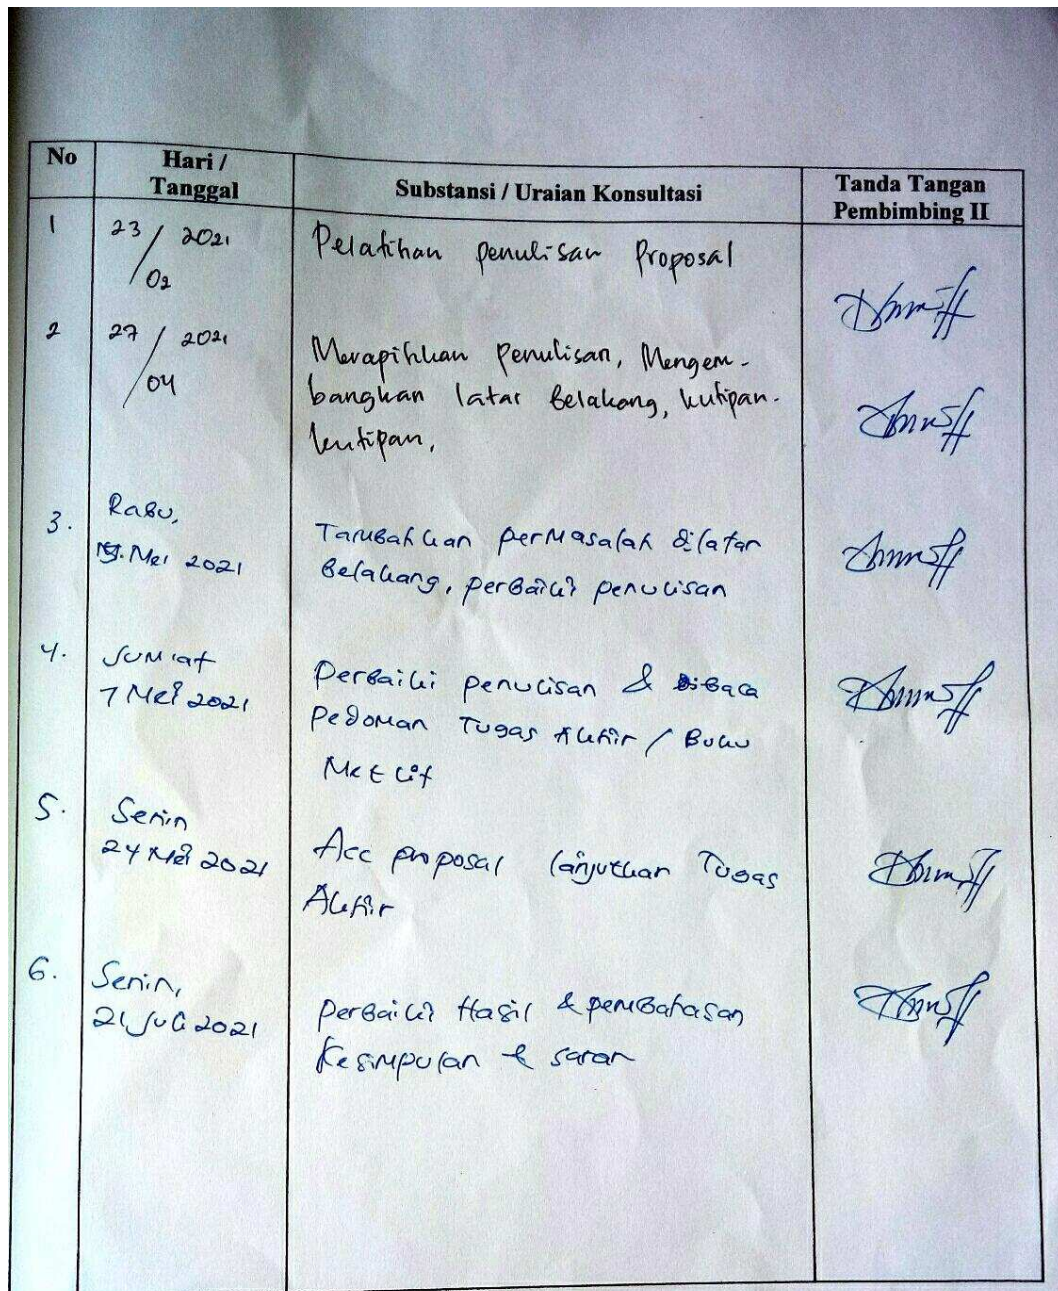 No
Hari /
Tanggal
Substansi / Uraian Konsultasi
Tanda Tangan
Pembimbing II
1
23/02 2021
Pelatihan penulisan Proposal
2
27/04 2021
Merapihkan Penulisan, Mengem-
bangkan latar Belakang, kutipan-
kutipan,
3.
Rabu,
Mei 2021
Tambahkan permasalah dilatar
Belakang, perbaiki penulisan
4.
Jum'at
7 Mei 2021
Perbaiki penulisan & dibaca
pedoman Tugas Akhir / Buku
5.
Senin
24 Mei 2021
Acc proposal lanjutkan Tugas
Akhir
6.
Senin,
21 Juli 2021
perbaiki Hasil & pembahasan
Kesimpulan & saran